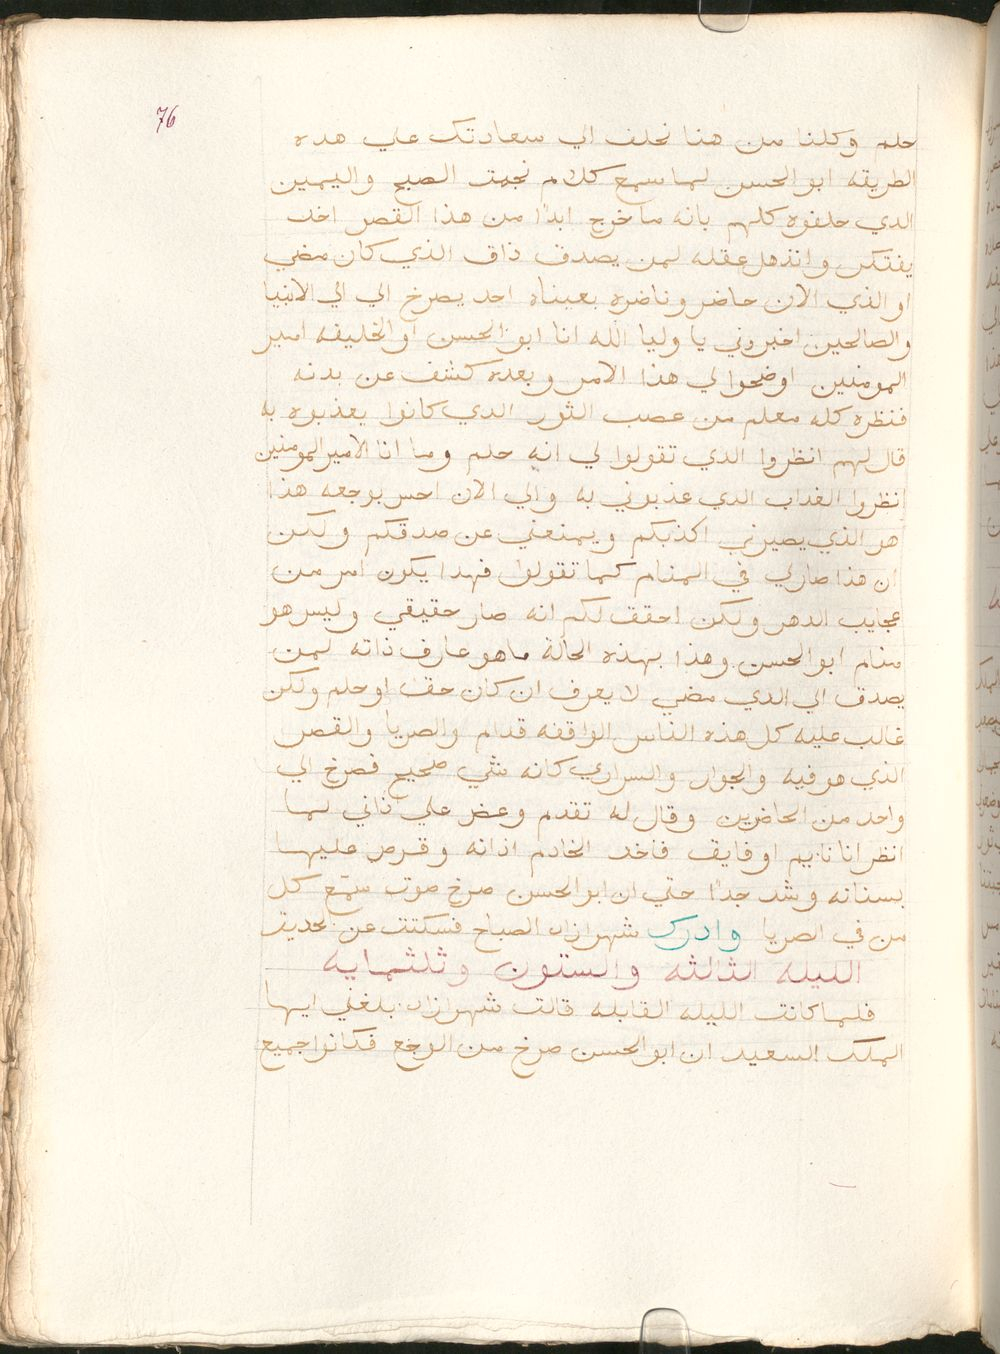 76
حلم وكلنا من هنا نحلف الي سعادتك علي هده
الطريقه ابو الحسن لما سمع كلام نجمت الصبح واليمين
الدي حلفوه كلهم بانه ما خرج ابدًا من هذا القصر اخد
يفتكر وانذهل عقله لمن يصدق ذاق الذي كان مضي
او الذي الان حاضر وناضره بعيناه احد يصرخ الي الي الانبيا
والصالحين اخبروني يا وليا الله انا ابو الحسن او الخليفه امير
المومنين اوضحوا لي هذا الامر وبعده كشف عن بدنه
فنظره كله معلم من عصب الثور الدي كانوا يعذبوه به
قال لهم انظروا الذي تقولوا لي انه حلم وما انا الامير المومنين
انظروا العداب الدي عذبوني به والي الان احس بوجعه هذا
هو الذي يصيرني اكذبكم ويمنعني عن صدقكم ولكن
ان هذا صار لي في المنام كما تقولوا فهدا يكون امر من
عجايب الدهر ولكن احقق لكم انه صار حقيقي وليس هو
منام ابو الحسن وهذا بهذه الحالة ما هو عارف ذاته لمن
يصدق الي الدي مضي لا يعرف ان كان حقا او حلم ولكن
غالب عليه كل هذه الناس الواقفه قدام والصريا والقصر
الذي هو فيه والجوار والسراري كانه شي صحيح فصرخ الي
واحد من الحاضرين وقال له تقدم وعض علي ذاني لما
انظر انا نايم او فايق فاخد الخادم اذانه وقرص عليها
بسنانه وشد جدًا حتي ان ابو الحسن صرخ صوت سمع كل
من في الصريا وادرك شهرازاد الصباح فسكتت عن الحديث
الليله الثالثه والستون وثلثمايه
فلما كانت الليله القابله قالت شهرازاد بلغني ايها
الملك السعيد ان ابو الحسن صرخ من الوجع فكانوا جميع